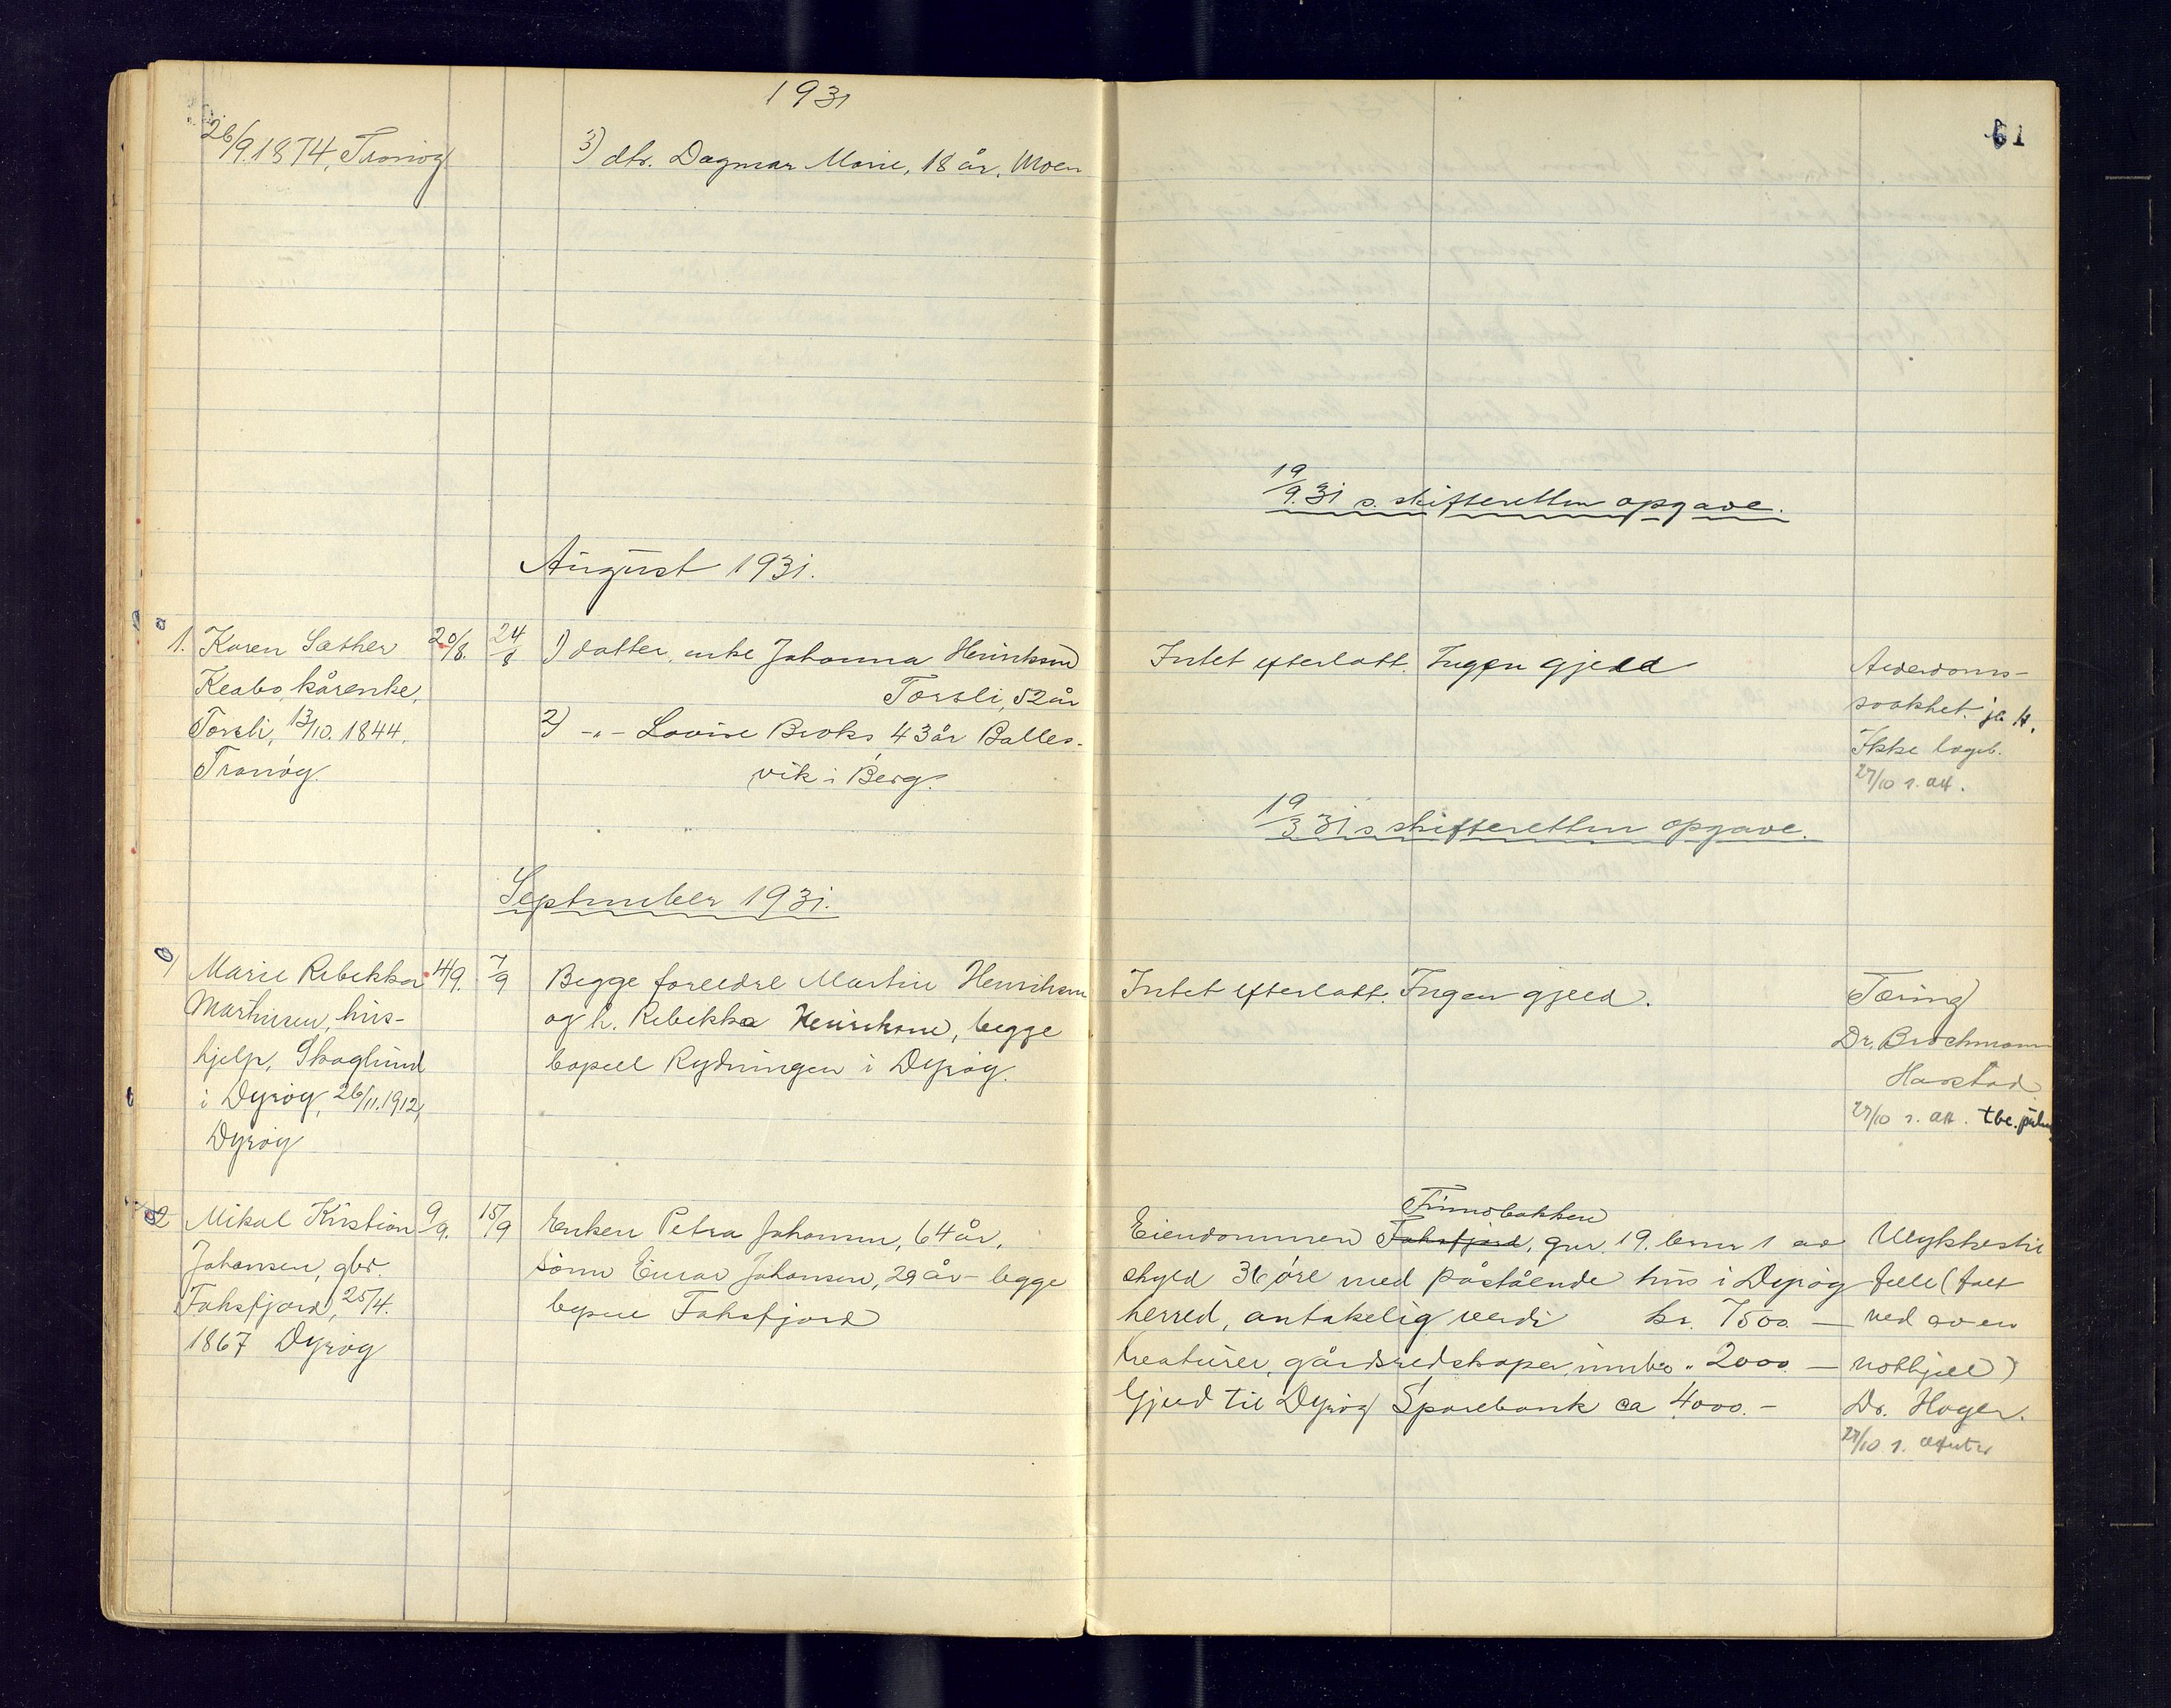 1931
61
26/9.1874, Tranøy
3) dtr. Dagmar Marie, 18 år, Moen
19/9.31 s. skifteretten opgave.
August 1931.
1. Karen Sæther 20/8. 24/8 1) datter, enke Johanna Henriksen
Torsli, 52 år
Intet efterlatt. Ingen gjeld
Alderdoms-
Keabo, kårenke,
svakhet. ja H.
Torsli, 13/10. 1844,
2) -„- Lovise Broks 43 år Balles-
Ikke legeb.
Tranøy.
vik i Berg.
27/10 s. att.
19/3 31 s skifteretten opgave.
September 1931.
1 Marie Rebekka 4/9. 7/9 Begge foreldre Martin Henriksen
Intet efterlatt. Ingen gjeld.
Tæring
Marhusen, hus-
og h. Rebekka Henriksen, begge
Dr. Brochmann
hjelp, Skoglund
bopel Rydningen i Dyrøy.
Harstad
i Dyrøy, 26/11.1912,
27/10 s. att. tbc. pulm
Dyrøy
2 Mikal Kristian 9/9. 15/9 Enken Petra Johansen, 64 år,
Finnbakken
Eiendommen Faksfjord, gnr. 19. bnr 1 av
Ulykkestil
Johansen, gbr.
sønn Einar Johansen, 29 år - begge
skyld 36 øre med påstående hus i Dyrøy
felle (falt
Faksfjord, 25/4.
bopel Faksfjord
herred, antakelig verdi kr. 7500 —
ned av en
1867 Dyrøy
kreaturer, gårdsredskaper, innbo „ 2000 —
nothjell)
Gjeld til Dyrøy Sparebank ca 4000.-
Dr. Høyer.
27/10 s.